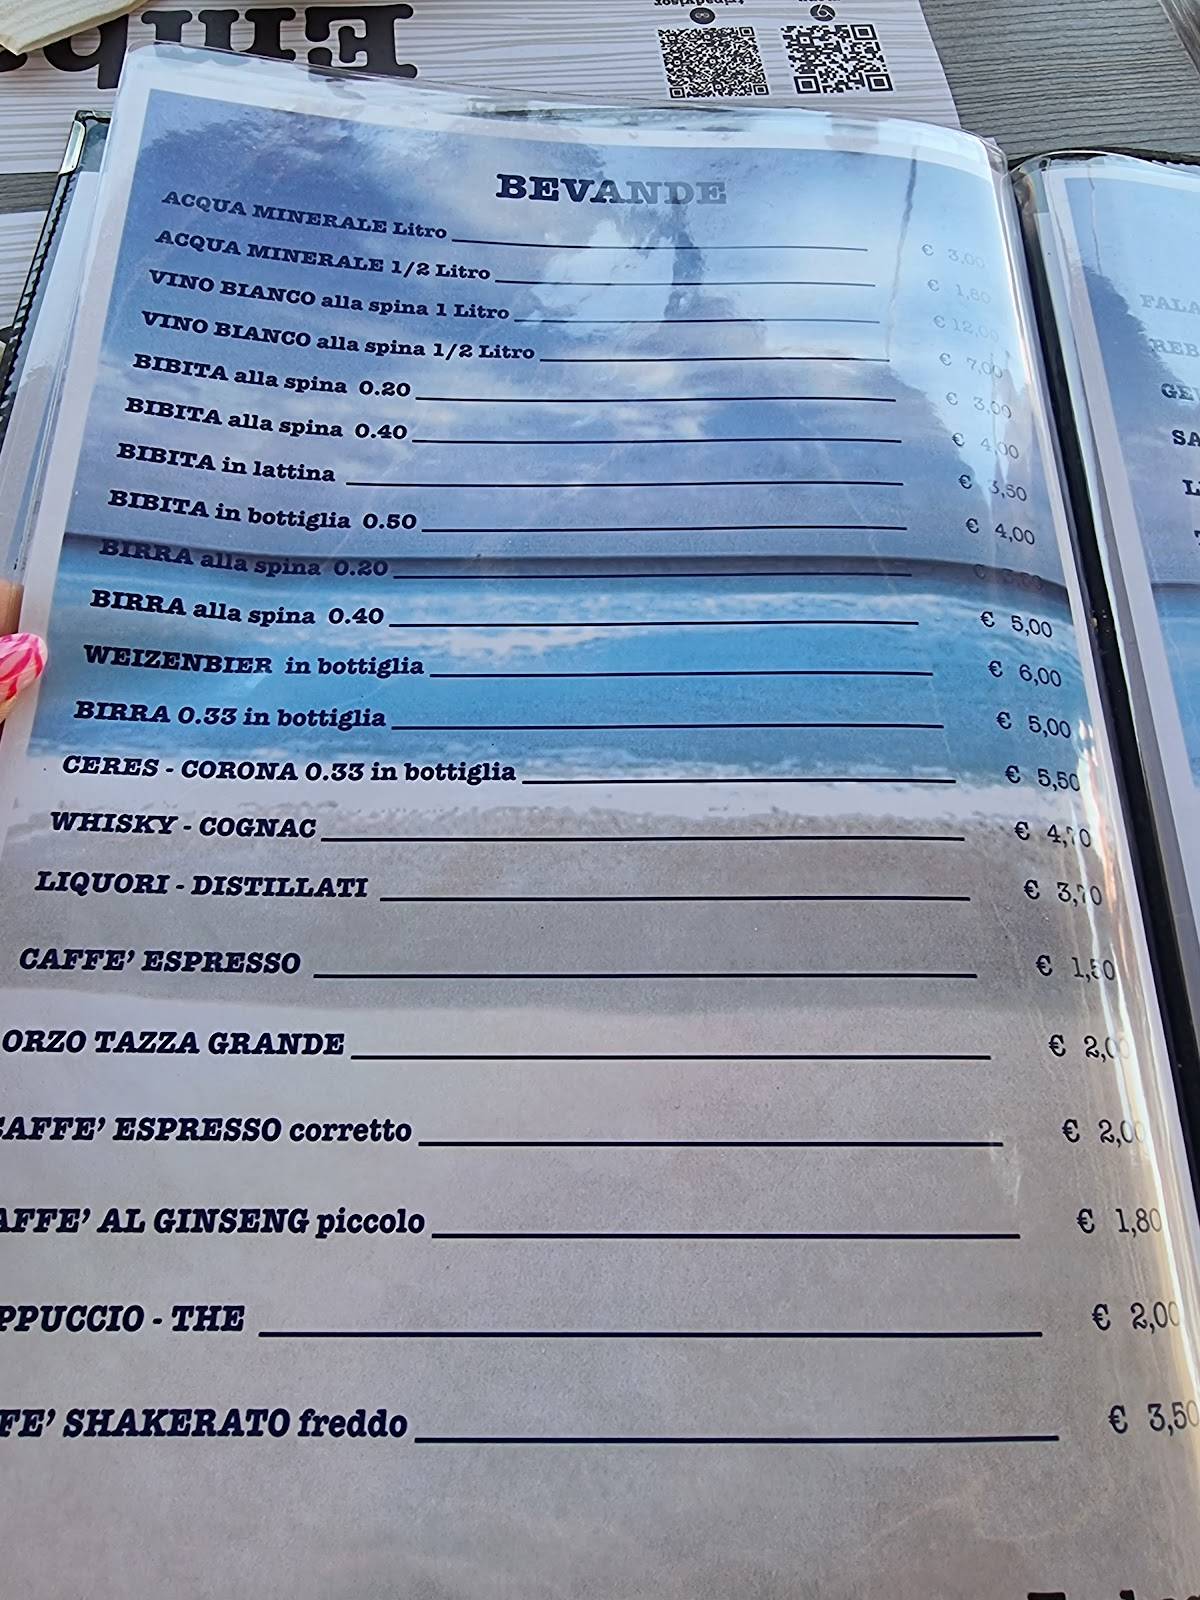 BEVANDE
ACQUA MINERALE Litro € 3,00
ACQUA MINERALE 1/2 Litro € 1,80
VINO BIANCO alla spina 1 Litro € 12,00
VINO BIANCO alla spina 1/2 Litro € 7,00
BIBITA alla spina 0.20 € 3,00
BIBITA alla spina 0.40 € 4,00
BIBITA in lattina € 3,50
BIBITA in bottiglia 0.50 € 4,00
BIRRA alla spina 0.20 €
BIRRA alla spina 0.40 € 5,00
WEIZENBIER in bottiglia € 6,00
BIRRA 0.33 in bottiglia € 5,00
CERES - CORONA 0.33 in bottiglia € 5,50
WHISKY - COGNAC € 4,70
LIQUORI - DISTILLATI € 3,70
CAFFE' ESPRESSO € 1,50
ORZO TAZZA GRANDE € 2,00
CAFFE' ESPRESSO corretto € 2,00
AFFE' AL GINSENG piccolo € 1,80
PPUCCIO - THE € 2,00
FE' SHAKERATO freddo € 3,50
FALA
REB
GE
SA
L